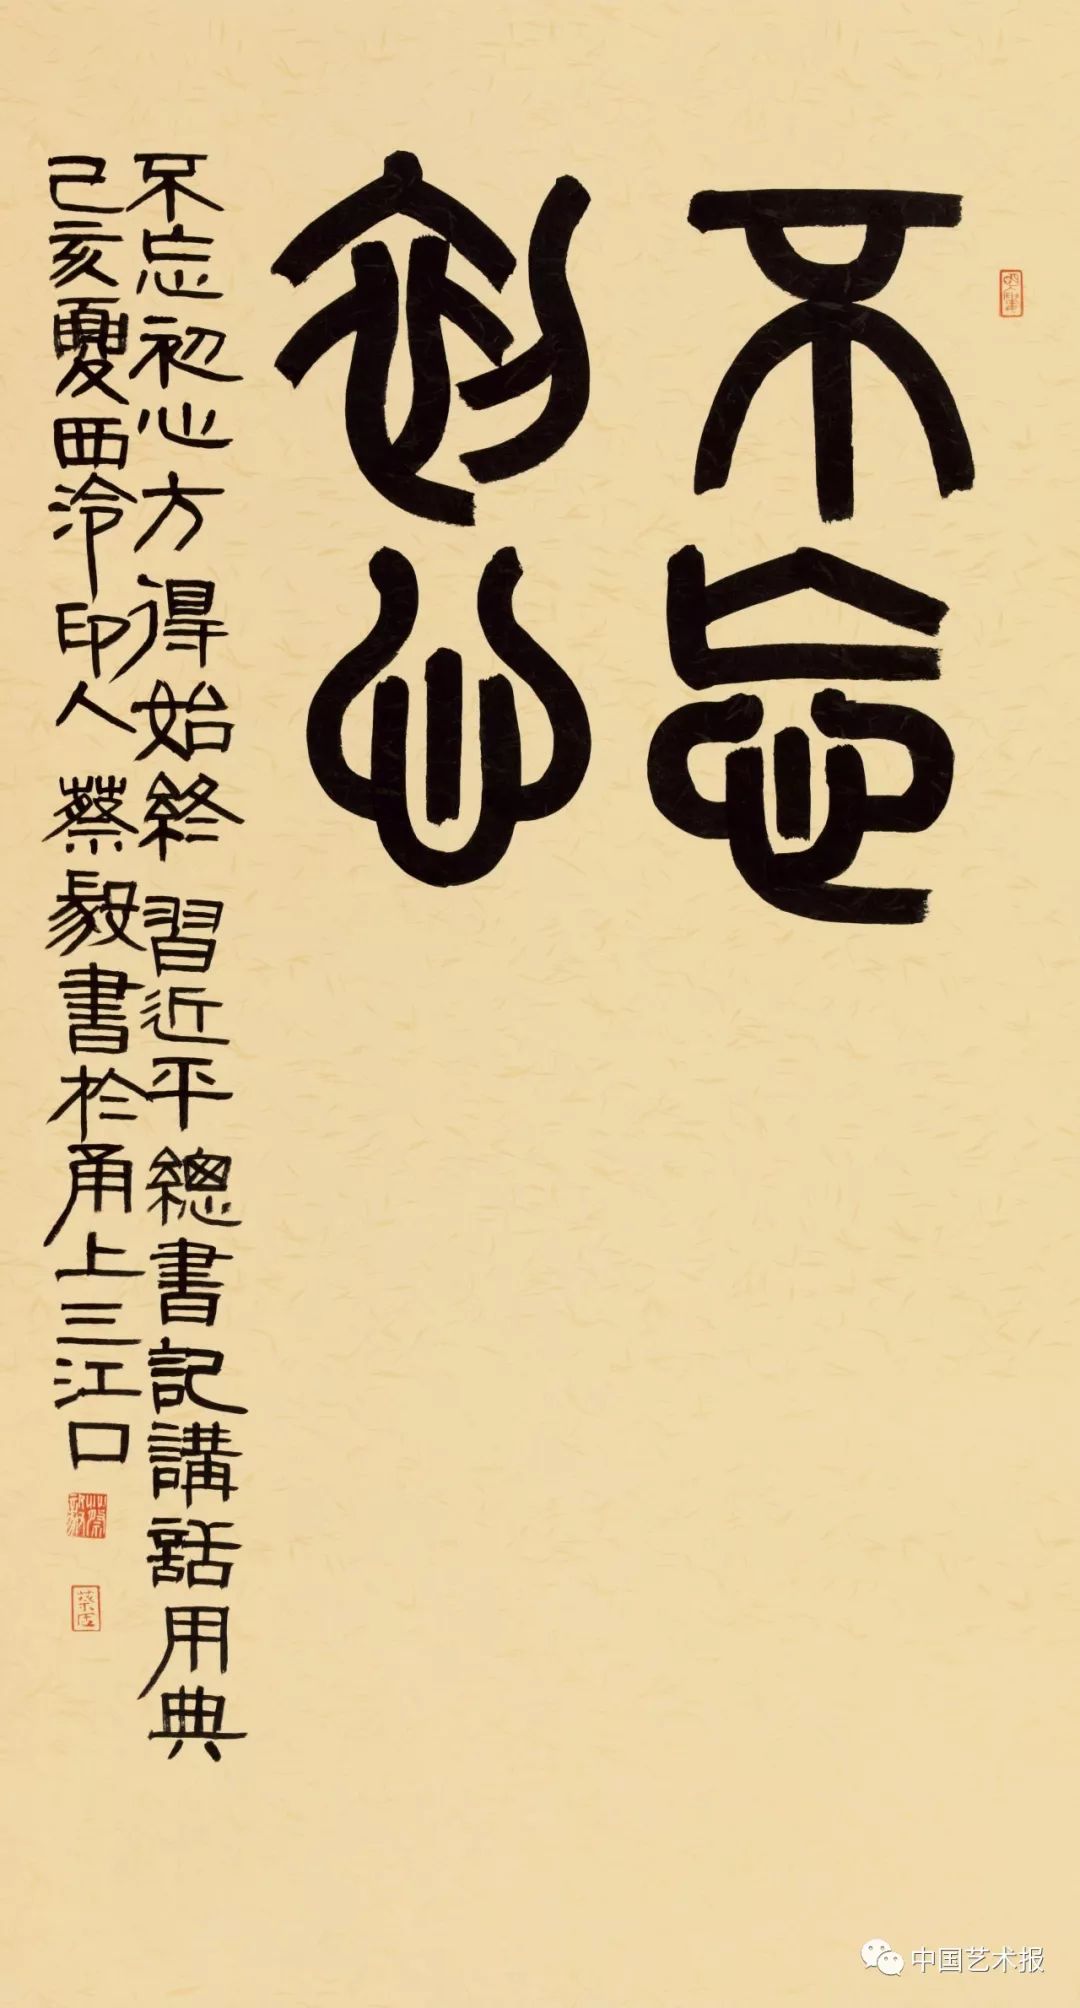 不忘
初心
不忘初心方得始終習近平總書記講話用典
己亥夏西泠印人蔡毅書於甬上三江口
蔡毅
中国艺术报